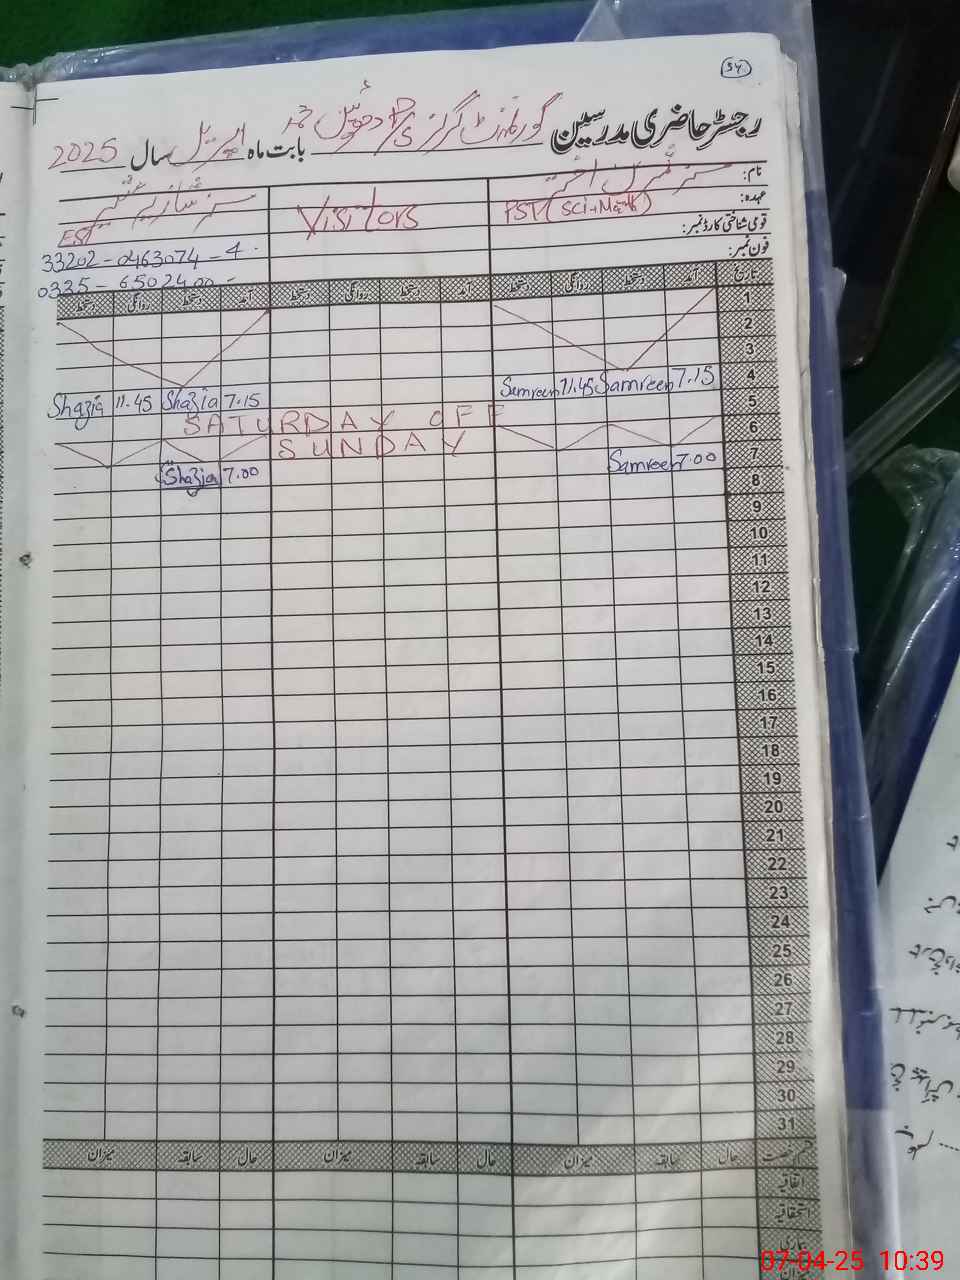 34
رجسٹر حاضری مدرسین گورنمنٹ گرلز
بابت ماہ اپریل سال 2025
نام:
Visitors
عہدہ: PST (Sci+Math)
EST
قومی شناختی کارڈ نمبر:
33202-0463074-4
فون نمبر:
0335-6502400
تاریخ آمد دستخط روانگی دستخط آمد دستخط روانگی دستخط آمد دستخط روانگی دستخط
1
2
3
4 7.15 Samreen 11.45 Samreen 7.15 Shazia 11.45 Shazia
5 SATURDAY OFF
6 SUNDAY
7 7.00 Samreen 7.00 Shazia
8
9
10
11
12
13
14
15
16
17
18
19
20
21
22
23
24
25
26
27
28
29
30
31
قسم رخصت حال سابقہ میزان حال سابقہ میزان حال سابقہ میزان
اتفاقیہ
استحقاقیہ
بیماری
میزان
07-04-25 10:39